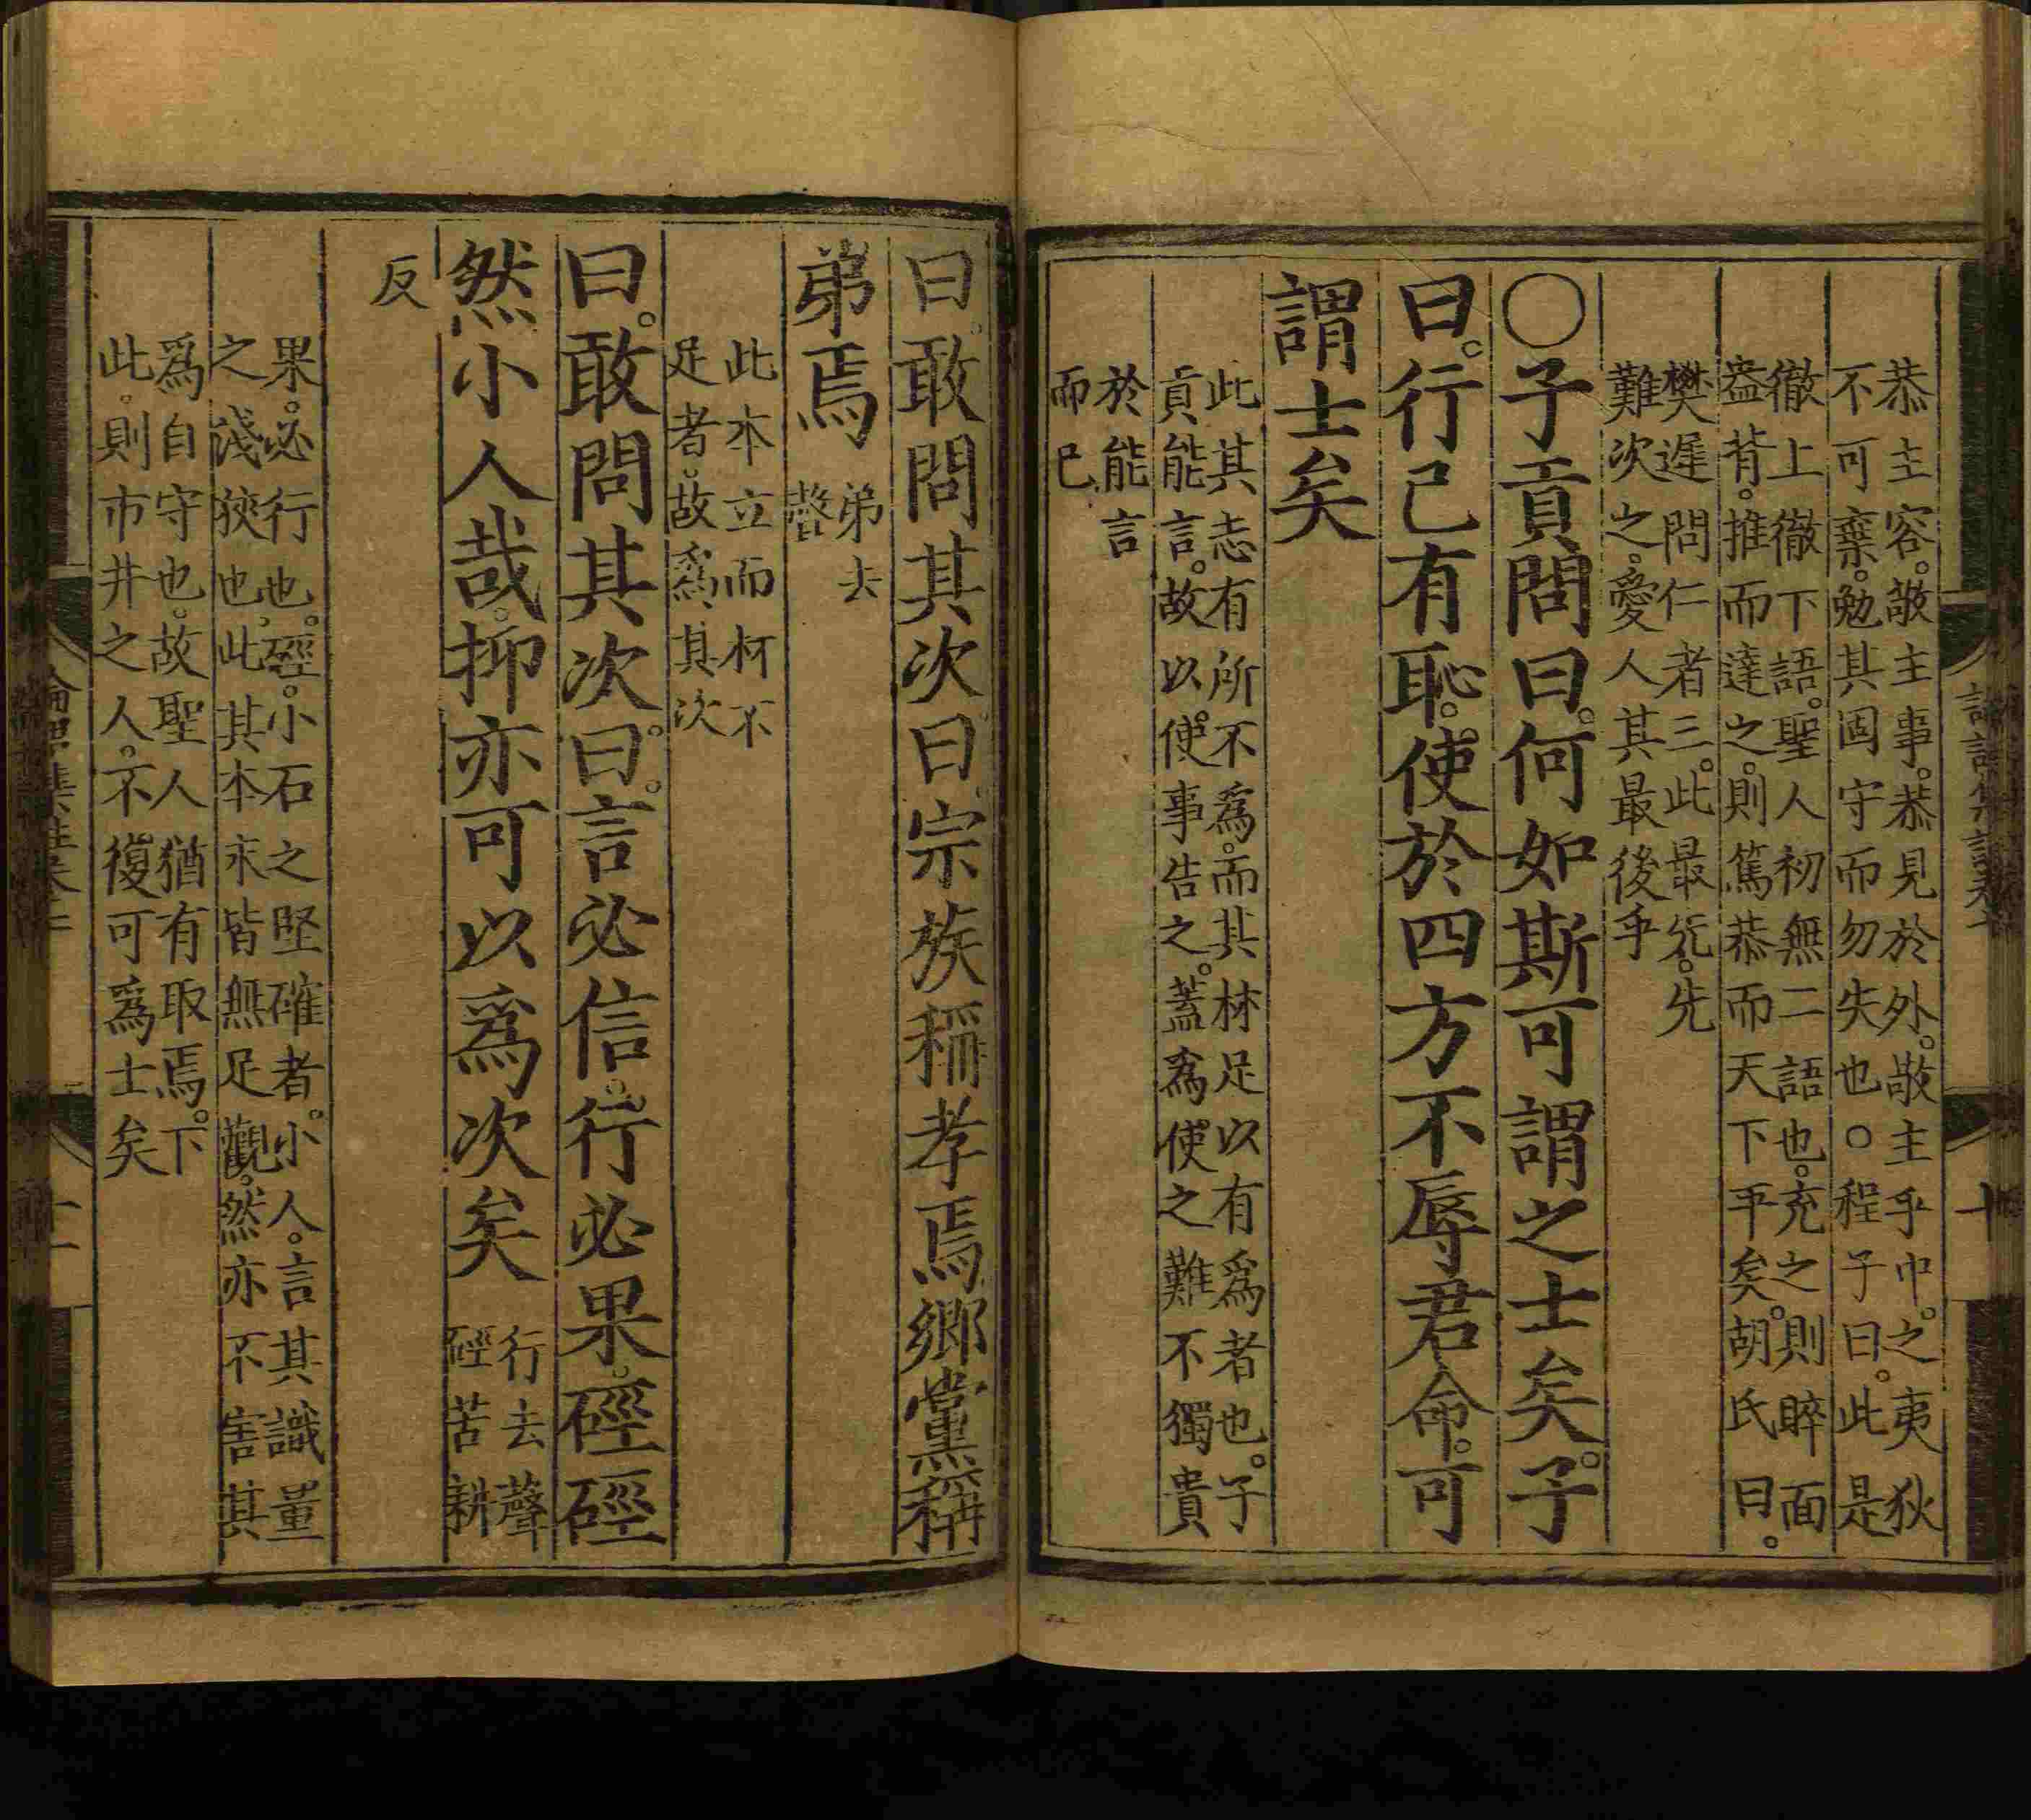 恭主容。敬主事。恭見於外。敬主乎中。之夷狄
不可棄。勉其固守而勿失也。○程子曰。此是
徹上徹下語。聖人初無二語也。充之則睟面
盎背。推而達之。則篤恭而天下平矣。胡氏曰。
樊遲問仁者三。此最先。先
難次之。愛人其最後乎
○子貢問曰。何如斯可謂之士矣。子
曰。行己有恥。使於四方不辱君命。可
謂士矣
此其志有所不為。而其材足以有爲者也。子
貢能言。故以使事告之。蓋爲使之難不獨貴
於能言
而已
曰。敢問其次曰宗族稱孝焉鄉黨稱
弟焉
弟去
聲
此本立而材不
足者。故爲其次
曰。敢問其次。曰。言必信。行必果。硜硜
然小人哉。抑亦可以爲次矣
行去聲
硜苦耕
反
果。必行也。硜。小石之堅確者。小人。言其識量
之淺狹也。此其本末皆無足觀。然亦不害其
爲自守也。故聖人猶有取焉。下
此。則市井之人。不復可爲士矣